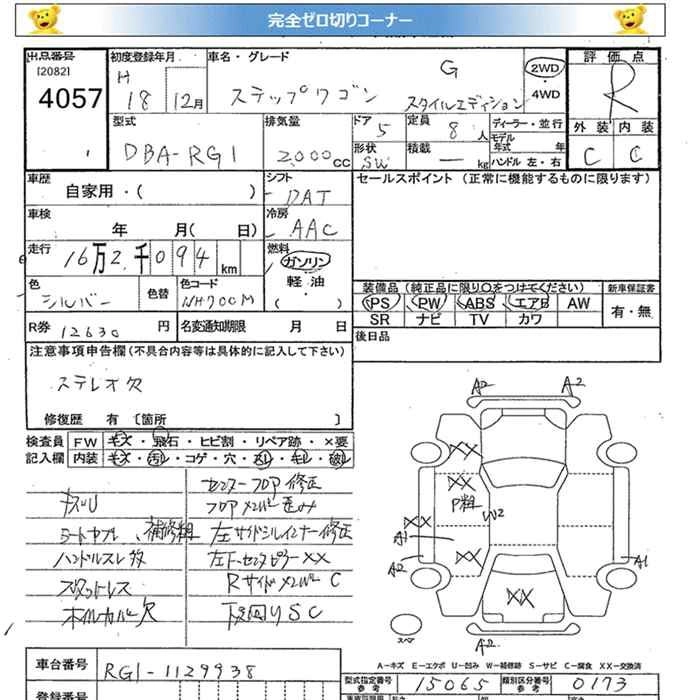 完全ゼロ切りコーナー
出品番号 初度登録年月 車名・グレード 評価点
[2082]
4057
H 18 12月 ステップワゴン G スタイルエディション 2WD 4WD R
型式 排気量 ドア 定員 ディーラー・並行 外装 内装
DBA-RG1 2,000cc 5 8人 モデル年式 年 C C
形状 SW 積載 ー kg ハンドル 左・右
車歴 自家用・( ) シフト DAT セールスポイント (正常に機能するものに限ります)
車検 年 月( 日) 冷房 AAC
走行 16万2千094km 燃料 ガソリン
軽・油
( )
色 シルバー 色替 色コード NH700M
装備品 (純正品に限り〇をつけてください) 新車保証書
PS PW ABS エアB AW 有・無
SR ナビ TV カワ
R券 12630円 名変通知期限 月 日 後日品
注意事項申告欄(不具合内容等は具体的に記入して下さい)
ステレオ欠
修復歴 有 〔箇所 〕
検査員 FW キズ・飛石・ヒビ割・リペア跡・×要
記入欄 内装 キズ・汚レ・コゲ・穴・スレ・キレ・破レ
センターフロア修正
キズU フロアメンバー歪み
シートヤブレ、補修粗 左サイドシルインナー修正
ハンドルスレ 左F、センターピラーXX
スタットレス RサイドメンバーC
ホイルカバー欠 下回りSC
A2 A2
XX
XX
P粗
W2
XX
A1
A2
XX
A1
XX
スペア
A2
A-キズ E-エクボ U-凹み W-補修跡 S-サビ C-腐食 XX-交換済
車台番号 RG1-1129938
型式指定番号 参考 15065 類別区分番号 参考 0173
登録番号